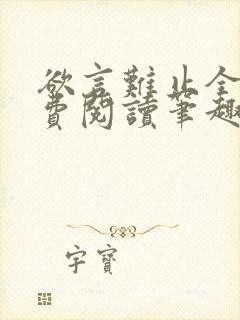 欲言難止全
費閱讀筆趣
字寶